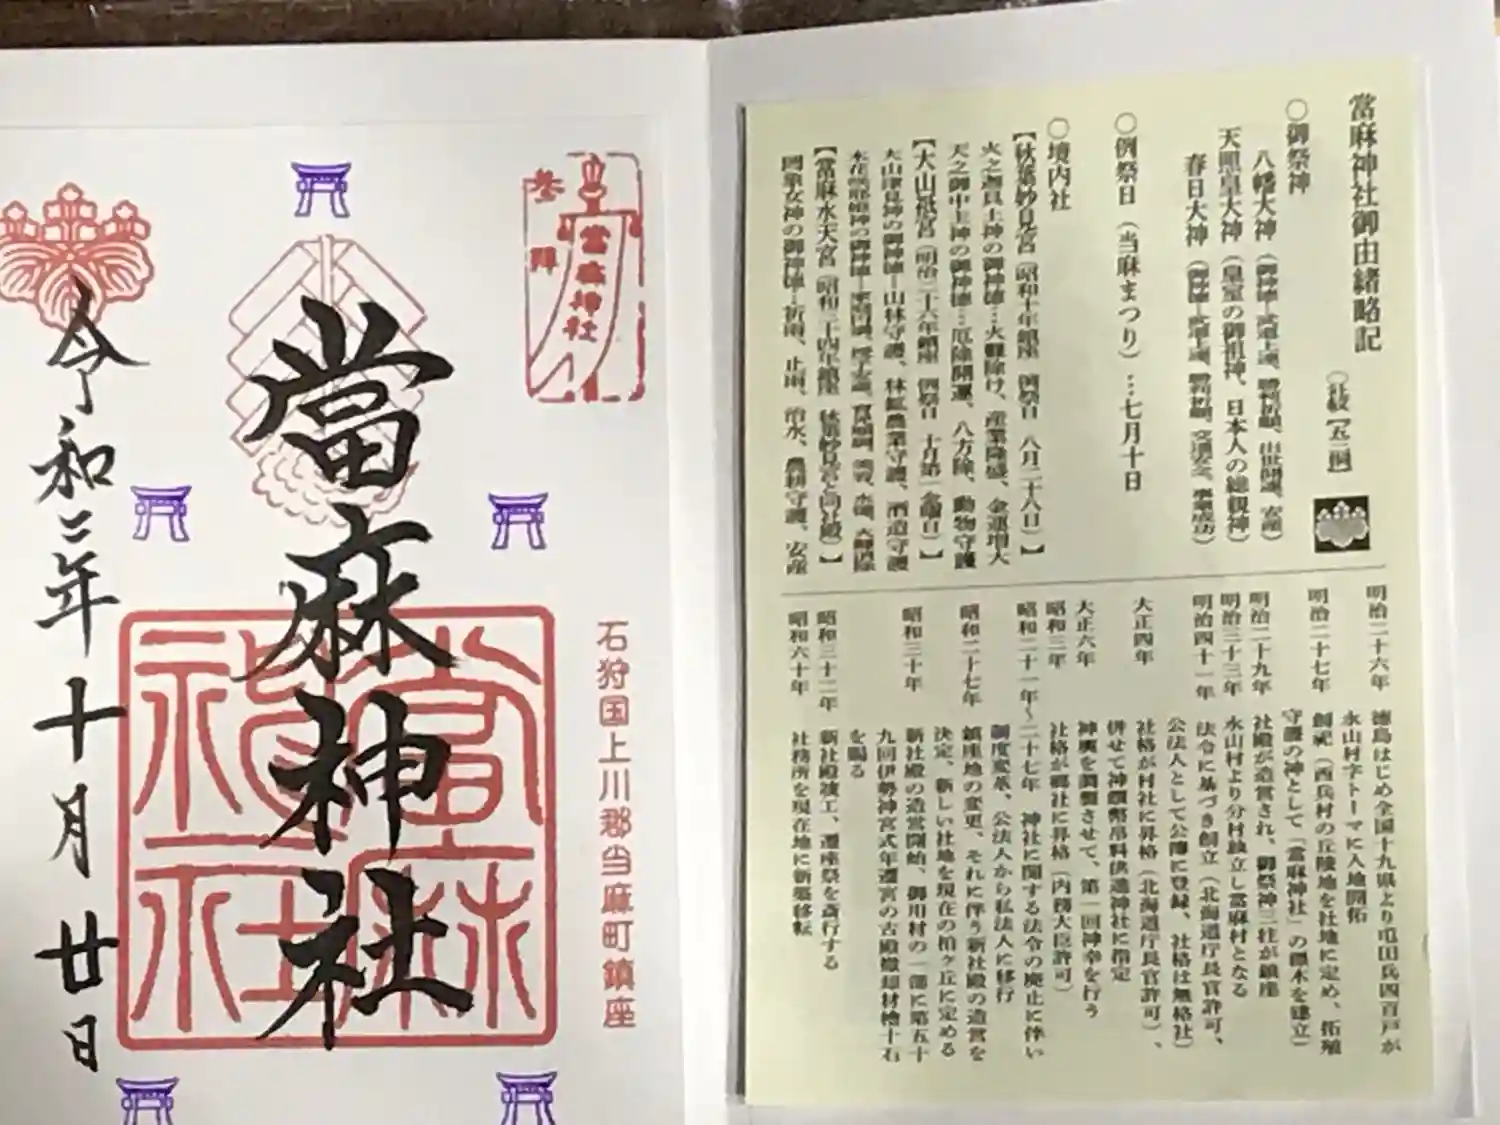 當麻神社御由緒略記
(社紋【五三桐】)
○御祭神
八幡大神(御神徳=武道上達、勝利祈願、出世開運、安産)
天照皇大神(皇室の御祖神、日本人の総親神)
春日大神(御神徳=武道上達、勝利祈願、交通安全、事業成功)
○例祭日(当麻まつり)…七月十日
○境内社
【秋葉妙見宮(昭和十年鎮座 例祭日 八月二十八日)】
火之迦具土神の御神徳…火難除け、産業隆盛、金運増大
天之御中主神の御神徳…厄除開運、八方除、動物守護
【大山祇宮(明治三十六年鎮座 例祭日 十月第一金曜日)】
大山津見神の御神徳=山林守護、林鉱農業守護、酒造守護
【當麻水天宮(昭和三十四年鎮座 秋葉妙見宮と同社殿)】
罔象女神の御神徳=祈雨、止雨、治水、農耕守護、安産
明治二十六年 徳島はじめ全国十九県より屯田兵四百戸が
永山村字トーマに入地開拓
明治二十七年 創祀(西兵村の丘陵地を社地に定め、拓殖
守護の神として「當麻神社」の標木を建立)
明治二十九年 社殿が造営され、御祭神三柱が鎮座
明治三十三年 永山村より分村独立し當麻村となる
明治四十一年 法令に基づき創立(北海道庁長官許可、
公法人として公簿に登録、社格は無格社)
大正四年 社格が村社に昇格(北海道庁長官許可)、
併せて神饌幣帛料供進神社に指定
大正六年 神輿を調製させて、第一回神幸を行う
昭和三年 社格が郷社に昇格(内務大臣許可)
昭和二十一年~二十七年 神社に関する法令の廃止に伴い
制度変革、公法人から私法人に移行
昭和二十七年 鎮座地の変更、それに伴う新社殿の造営を
決定、新しい社地を現在の柏ヶ丘に定める
昭和三十年 新社殿の造営開始、御用材の一部に第五十
九回伊勢神宮式年遷宮の古殿撤却材檜十石
を賜る
昭和三十二年 新社殿竣工、遷座祭を斎行する
昭和六十年 社務所を現在地に新築移転
参拝
當麻神社
石狩国上川郡当麻町鎮座
當麻神社
當麻神社
令和三年十月廿日